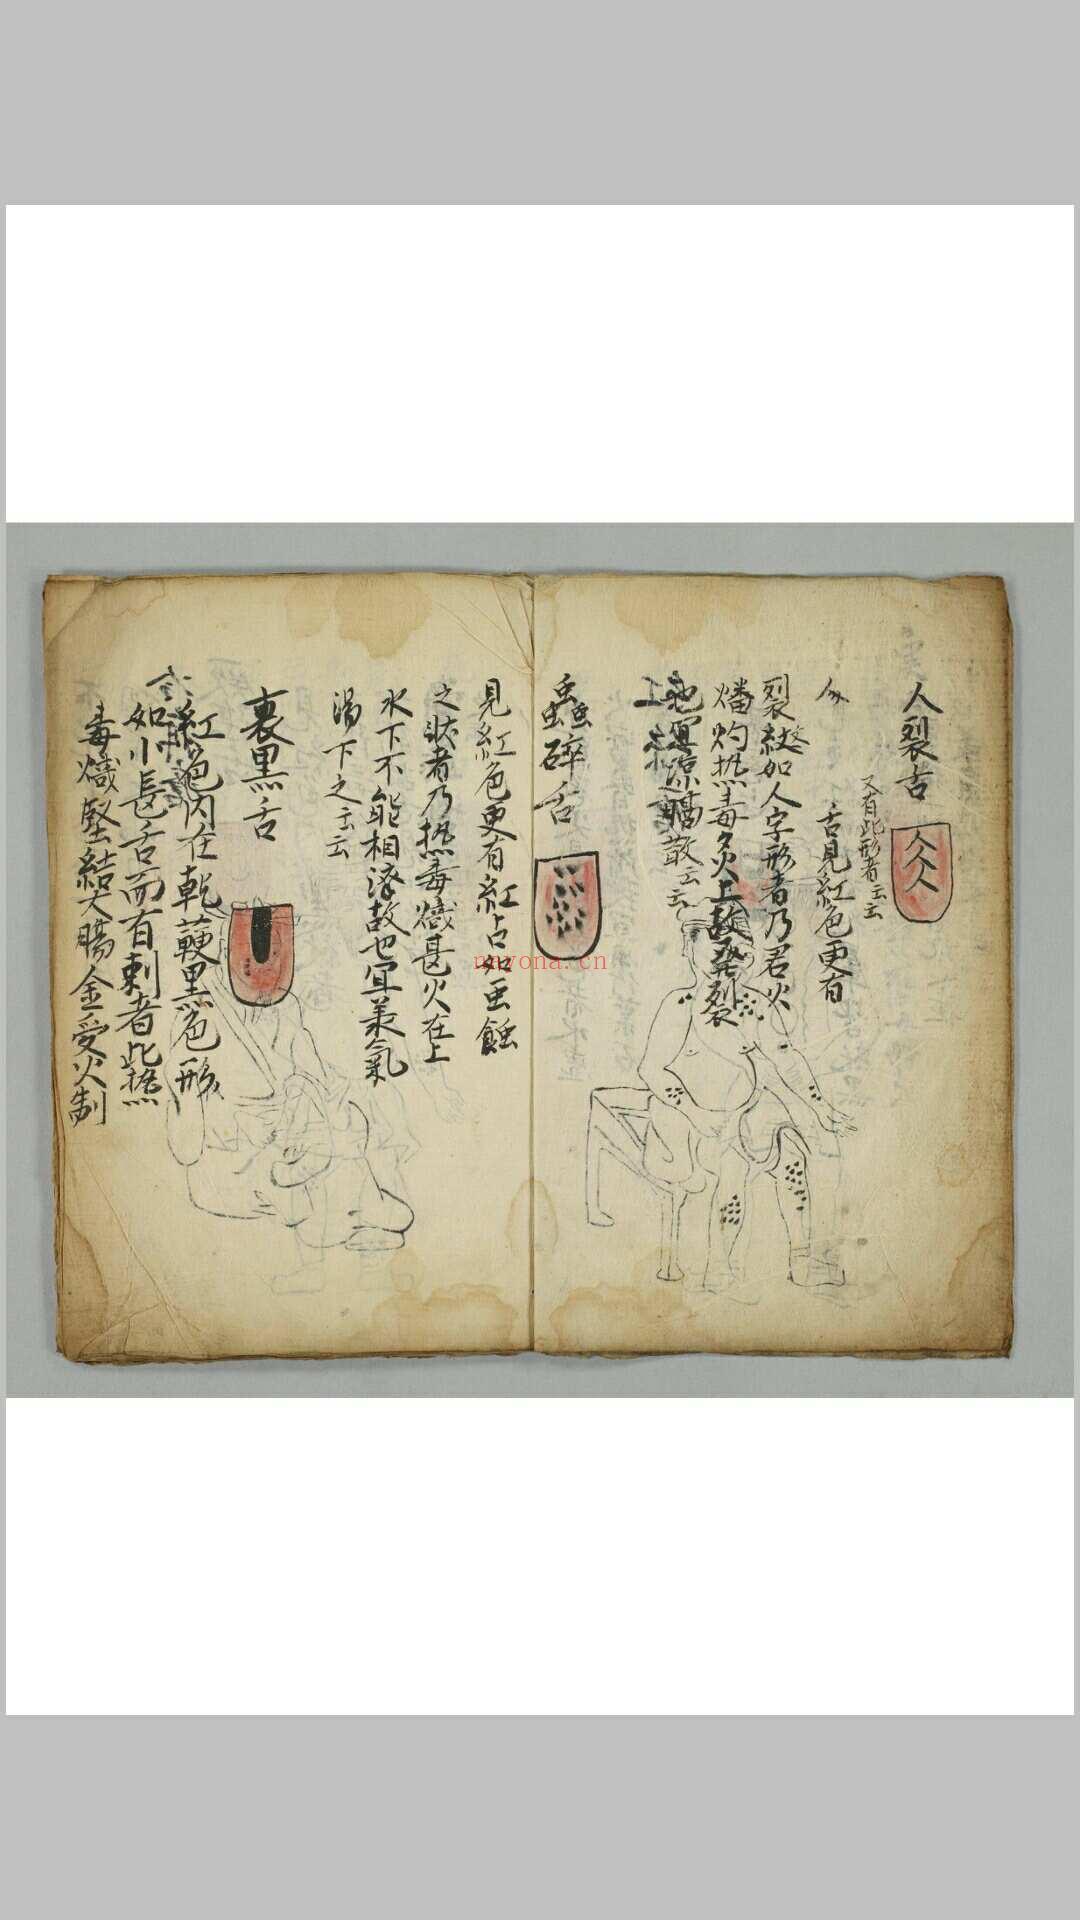 人裂舌
又有此形者云云
舌見紅色更有
裂紋如人字形者乃君火
燔灼热毒炎上故發裂
宜凉膈散云云
蟲碎舌
見紅色更有紅占如虫蝕
之状者乃热毒熾甚火在上
水下不能相済故也宜承氣
湯下之云云
裏黒舌
紅色内在乾鞕黒色形
如小長舌而有刺者此热
毒熾堅結大腸金受火制
人人人
nayona.cn